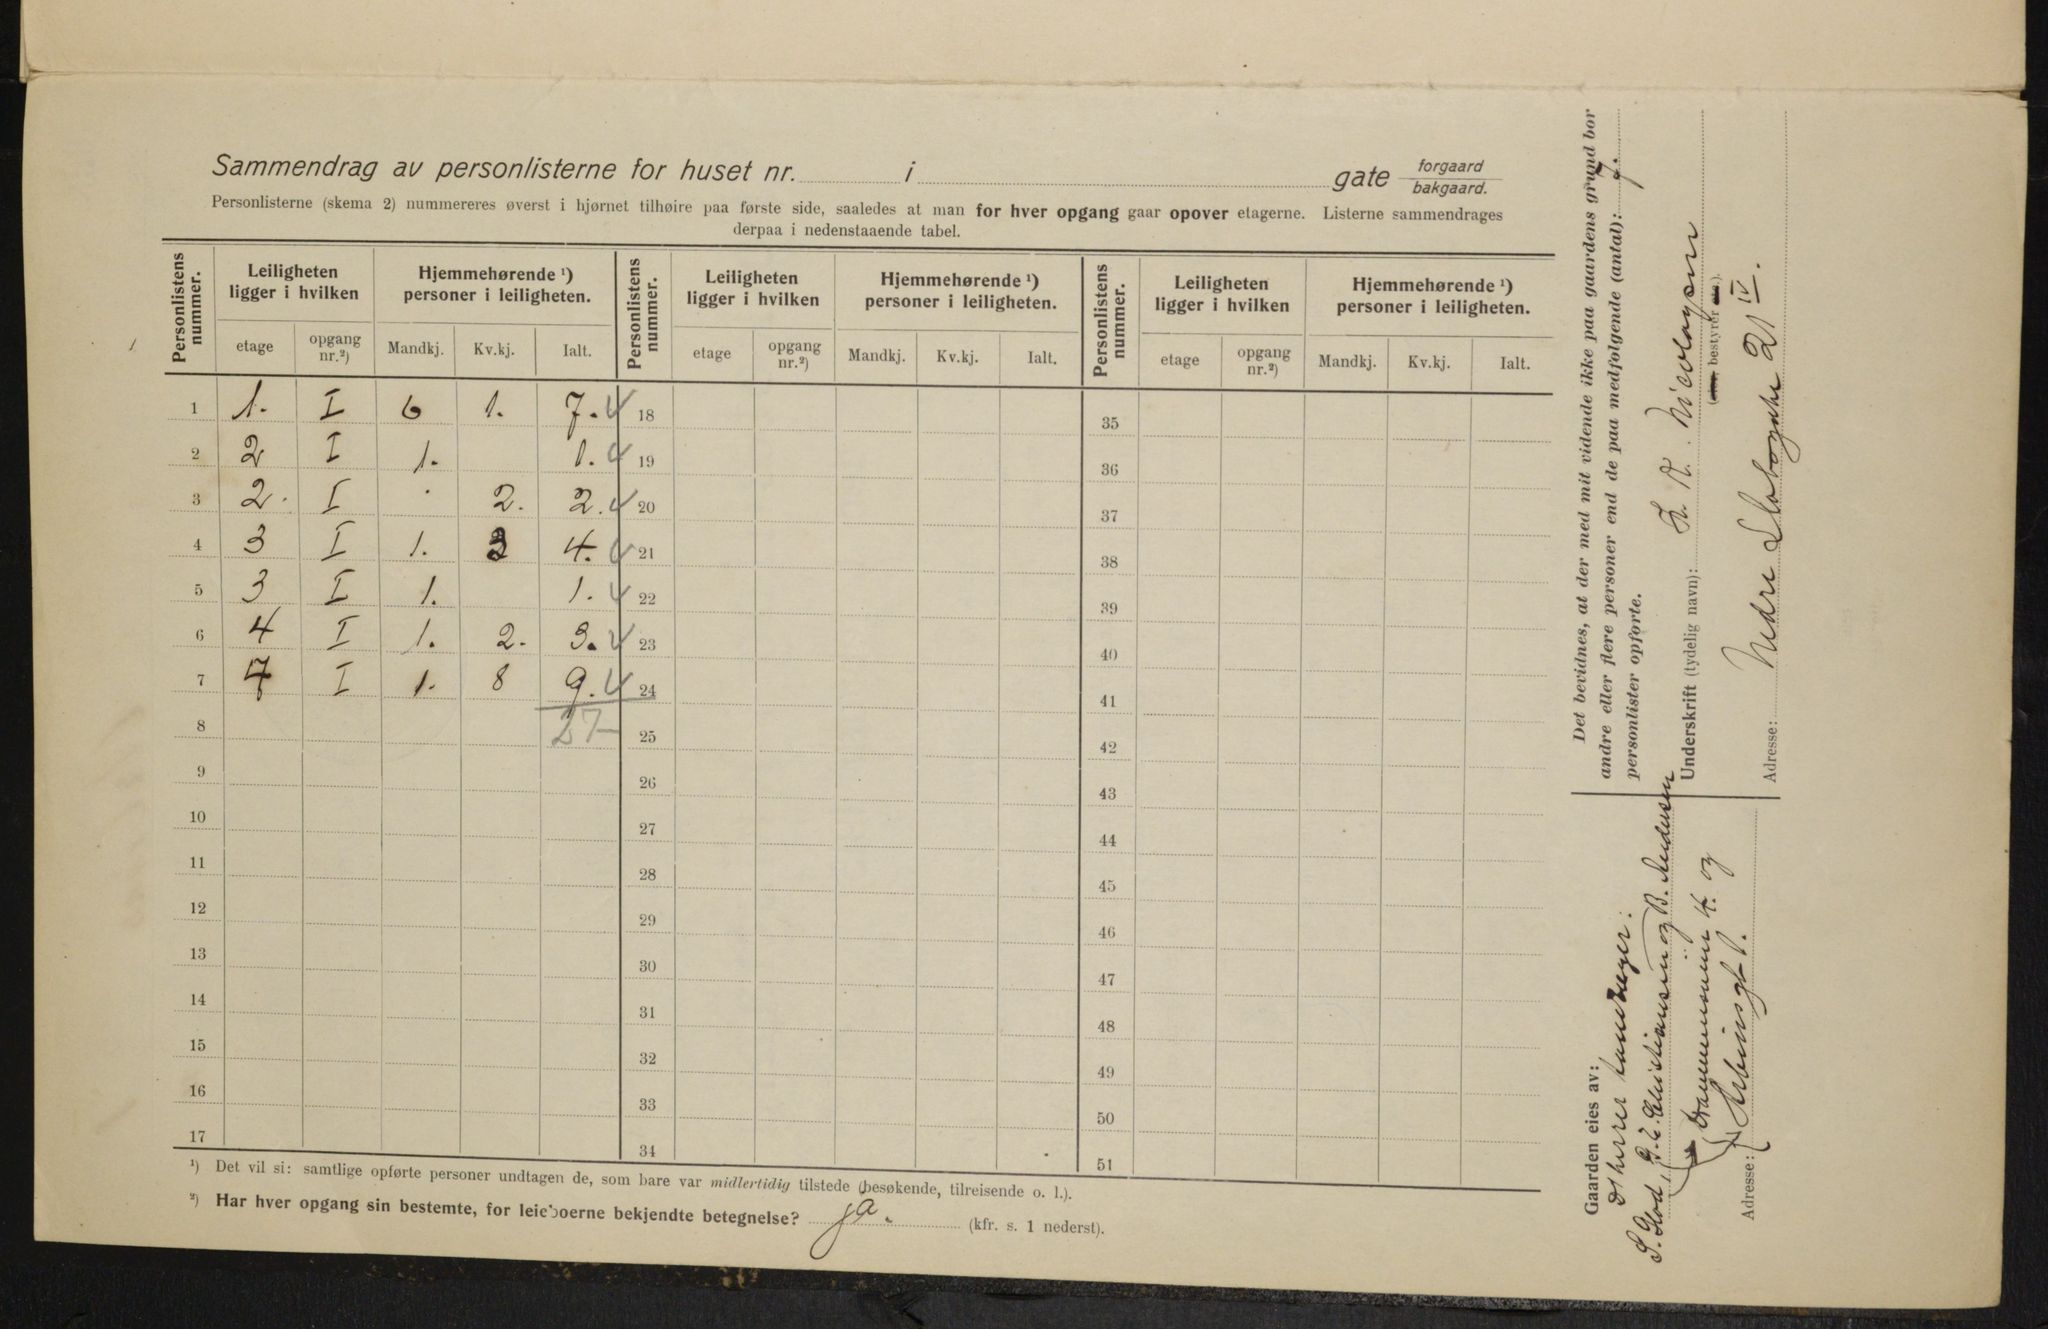 Sammendrag av personlisterne for huset nr. i gate forgaard bakgaard.
Personlisterne (skema 2) nummereres øverst i hjørnet tilhøire paa første side, saaledes at man for hver opgang gaar opover etagerne. Listerne sammendrages
derpaa i nedenstaaende tabel.
Personlistens nummer. Leiligheten ligger i hvilken Hjemmehørende ¹) personer i leiligheten. Personlistens nummer. Leiligheten ligger i hvilken Hjemmehørende ¹) personer i leiligheten. Personlistens nummer. Leiligheten ligger i hvilken Hjemmehørende ¹) personer i leiligheten.
etage opgang nr.²) Mandkj. Kv.kj. Ialt. etage opgang nr.²) Mandkj. Kv.kj. Ialt. etage opgang nr.²) Mandkj. Kv.kj. Ialt.
1 1. I 6 1. 7. 18 35
2 2 I 1. 1. 19 36
3 2. I . 2. 2. 20 37
4 3 I 1. 3 4. 21 38
5 3 I 1. 1. 22 39
6 4 I 1. 2. 3. 23 40
7 4 I 1. 8 9. 24 41
8 27 25 42
9 26 43
10 27 44
11 28 45
12 29 46
13 30 47
14 31 48
15 32 49
16 33 50
17 34 51
¹) Det vil si: samtlige opførte personer undtagen de, som bare var midlertidig tilstede (besøkende, tilreisende o. l.).
²) Har hver opgang sin bestemte, for leieboerne bekjendte betegnelse? ja. (kfr. s. 1 nederst).
Det bevidnes, at der med mit vidende ikke paa gaardens grund bor
andre eller flere personer end de paa medfølgende (antal): 7.
personlister opførte.
Underskrift (tydelig navn): K. Nicolaysen
bestyrer
Adresse: Nedre Slotsgate 21 IV.
Gaarden eies av:
D'herrer
S. Glod, J. E. Christiansen og B. Andersen
Drammensvn 4. og
Adresse: Arbinsgt 1.